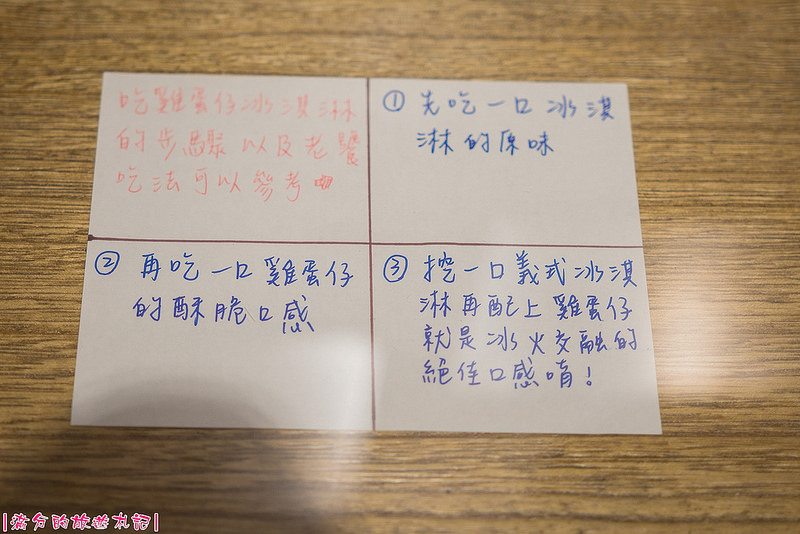 吃雞蛋仔冰淇淋
的步驟以及老饕
吃法可以參考
① 先吃一口冰淇
淋的原味
② 再吃一口雞蛋仔
的酥脆口感
③ 挖一口義式冰淇
淋再配上雞蛋仔
就是冰火交融的
絕佳口感唷!
|滿分的旅遊札記|